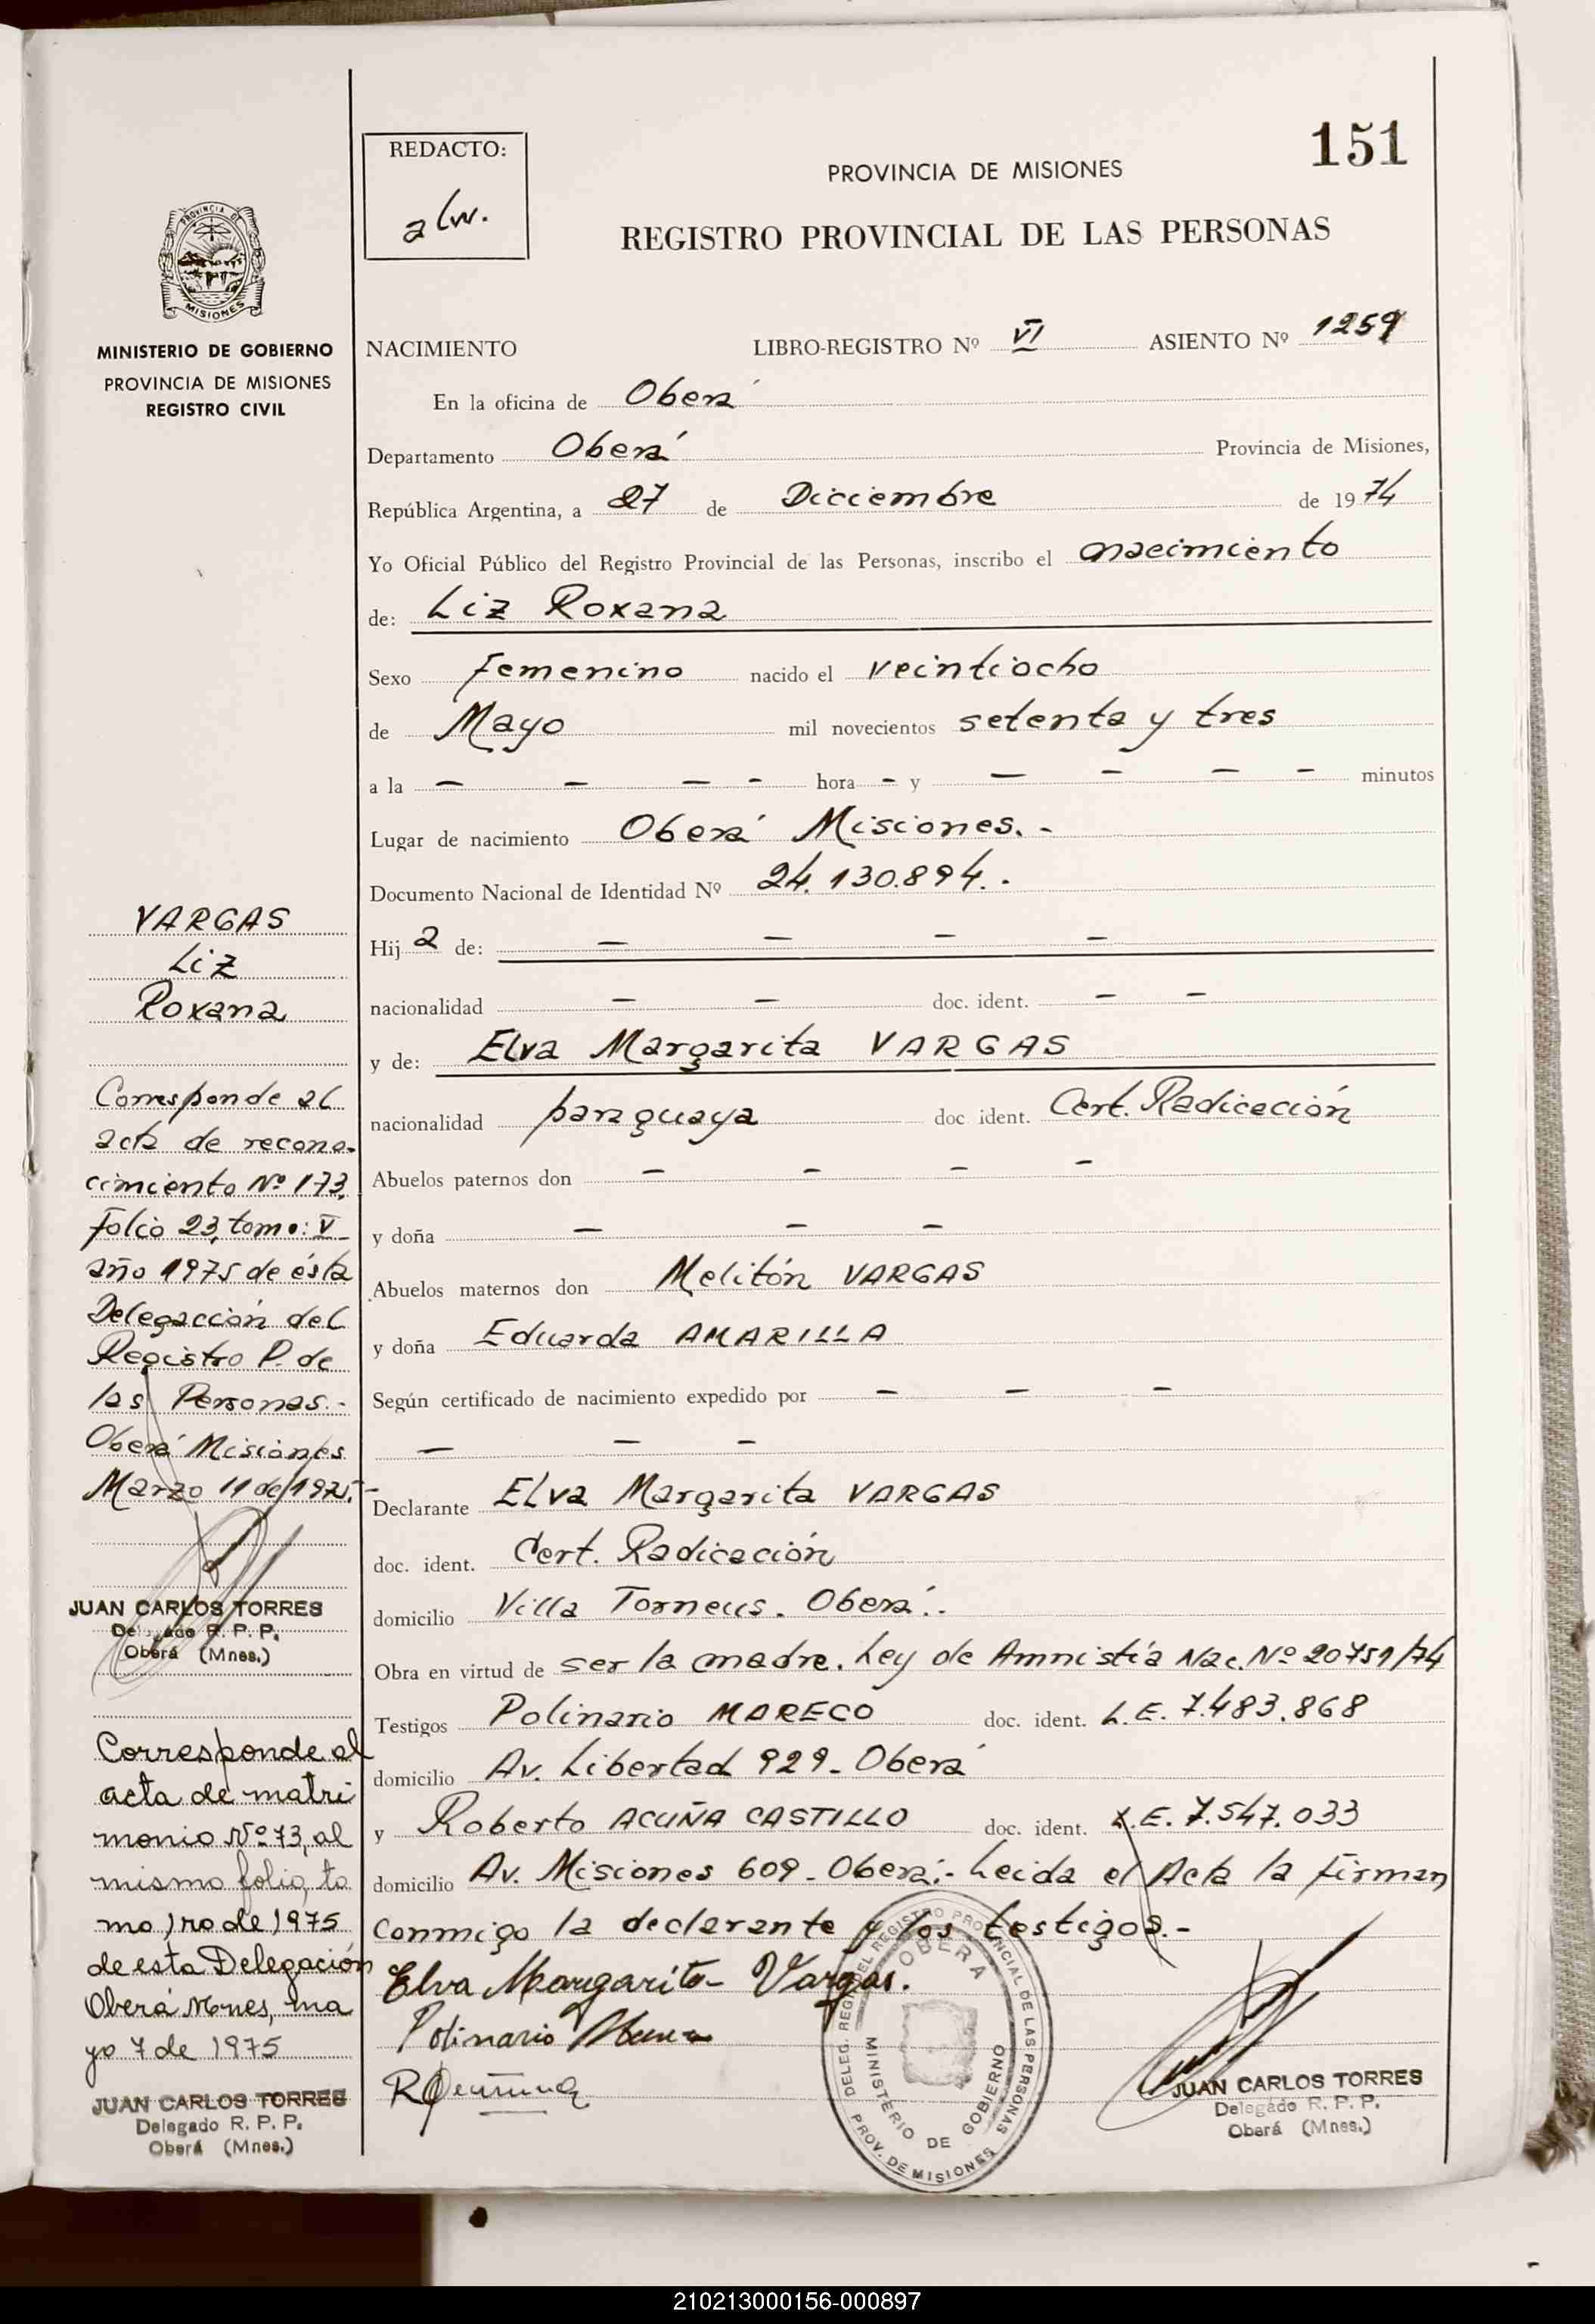 151
REDACTO:
alw.
PROVINCIA DE MISIONES
REGISTRO PROVINCIAL DE LAS PERSONAS
PROVINCIA DE
MISIONES
MINISTERIO DE GOBIERNO
PROVINCIA DE MISIONES
REGISTRO CIVIL
NACIMIENTO LIBRO-REGISTRO Nº VI ASIENTO Nº 1259
En la oficina de Oberá
Departamento Oberá Provincia de Misiones,
República Argentina, a 27 de Diciembre de 1974
Yo Oficial Público del Registro Provincial de las Personas, inscribo el nacimiento
de: Liz Roxana
Sexo Femenino nacido el veintiocho
de Mayo mil novecientos setenta y tres
a la — — — - hora - y — - — - minutos
Lugar de nacimiento Oberá Misiones. -
Documento Nacional de Identidad Nº 24.130.894.-
Hij a de: — — — —
nacionalidad — — doc. ident. — —
y de: Elva Margarita VARGAS
nacionalidad paraguaya doc ident. Cert. Radicación
Abuelos paternos don — — — —
y doña — — —
Abuelos maternos don Melitón VARGAS
y doña Eduarda AMARILLA
Según certificado de nacimiento expedido por — — —
— — —
Declarante Elva Margarita VARGAS
doc. ident. Cert. Radicación
domicilio Villa Torneus. Oberá.-
Obra en virtud de ser la madre. Ley de Amnistía Nac. Nº 20751/74
Testigos Polinario MARECO doc. ident. L.E. 7.483.868
domicilio Av. Libertad 929- Oberá
y Roberto ACUÑA CASTILLO doc. ident. L.E. 7.547.033
domicilio Av. Misiones 609- Oberá.- Leida el Acta la firman
conmigo la declarante y los testigos.-
Elva Margarita Vargas.
Polinario
DELEG. REG. DEL REGISTRO PROVINCIAL DE LAS PERSONAS
OBERA
MINISTERIO DE GOBIERNO
PROV. DE MISIONES
JUAN CARLOS TORRES
Delegado R. P. P.
Oberá (Mnes.)
VARGAS
Liz
Roxana
Corresponde al
acta de recono-
cimiento Nº 173,
Folio 23, tomo: V
año 1975 de ésta
Delegación del
Registro P. de
las Personas.-
Oberá Misiones
Marzo 11 de 1975.-
JUAN CARLOS TORRES
Delegado R. P. P.
Oberá (Mnes.)
Corresponde al
acta de matri
monio Nº 73, al
mismo folio, to
mo 1ro de 1975
de esta Delegación
Oberá Mnes, ma
yo 7 de 1975
JUAN CARLOS TORRES
Delegado R. P. P.
Oberá (Mnes.)
210213000156-000897